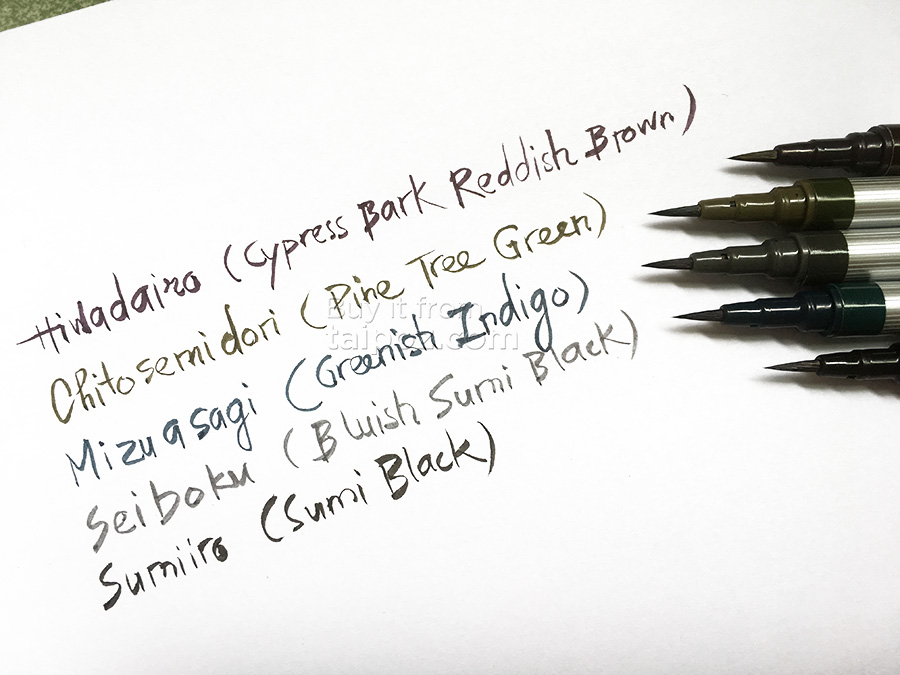 Hiwadairo (Cypress Bark Reddish Brown)
Chitosemidori (Pine Tree Green)
Mizuasagi (Greenish Indigo)
Seiboku (Bluish Sumi Black)
Sumiiro (Sumi Black)
Buy it from